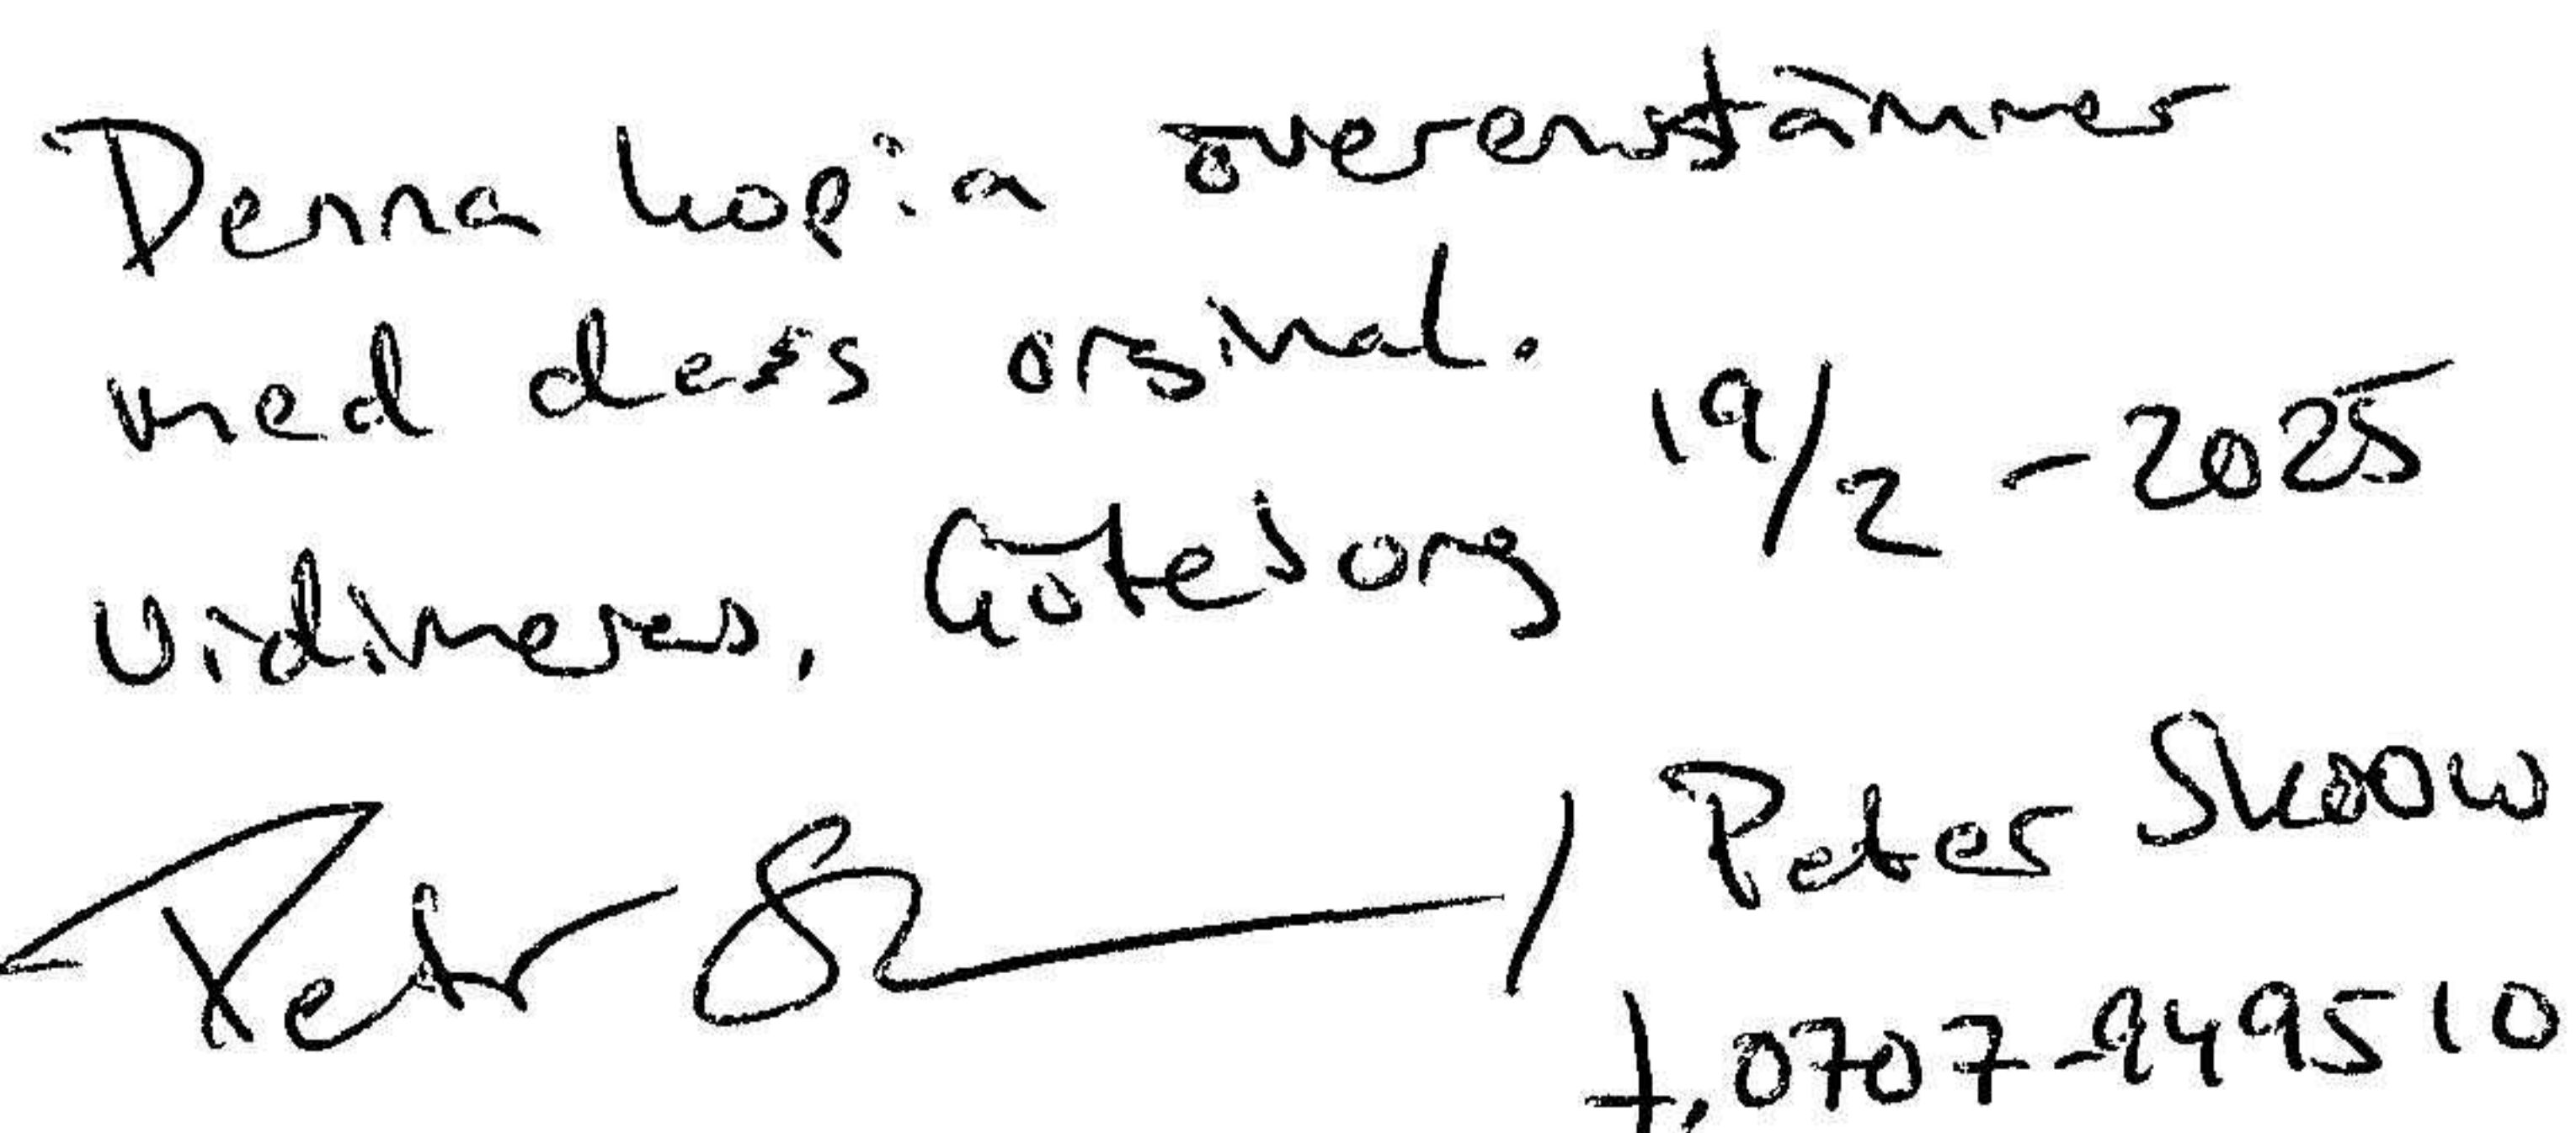 Denna kopia överensstämmer
med dess orginal.
Vidimeras, Göteborg 19/2 - 2025
Peter / Peter Skoow
t. 0707-949510